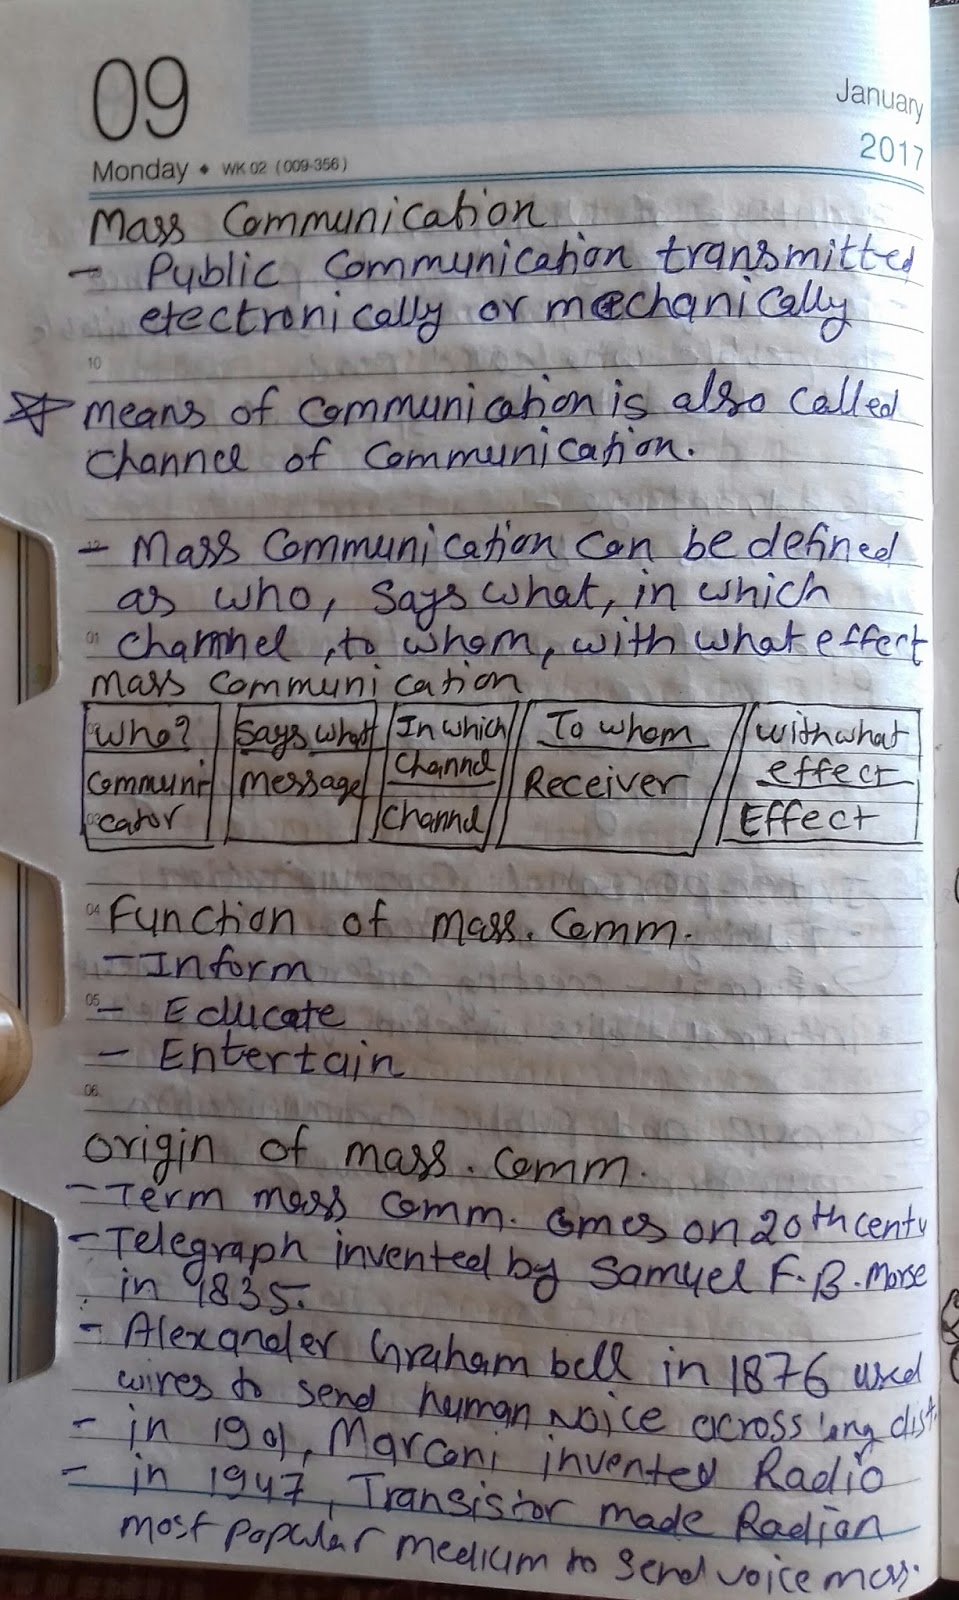 09
January
2017
Monday • WK 02 (009-356)
Mass Communication
- Public Communication transmitted
electronically or mechanically
10
☆ means of communication is also called
Channel of Communication.
12
- Mass Communication can be defined
as who, says what, in which
01 channel, to whom, with what effect
mass communication
who? | Says what | In which Channel | To whom | with what effect
Communicator | message | channel | Receiver | Effect
04 Function of mass. Comm.
- Inform
05 - Educate
- Entertain
06
origin of mass. Comm.
- Term mass comm. comes on 20th centu
- Telegraph invented by Samuel F.B. Morse
in 1835.
- Alexander Graham bell in 1876 used
wires to send human voice across long dist.
- in 1901, Marconi invented Radio
- in 1947, Transistor made Radion
most popular medium to send voice mess.